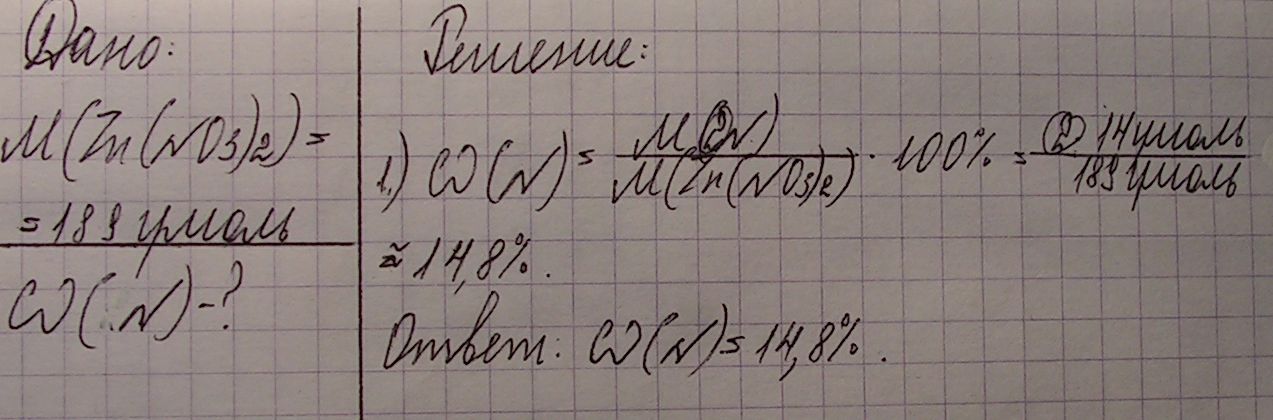 Дано:
M(Zn(NO3)2) =
= 189 г/моль
ω(N) - ?
Решение:
1.) ω(N) = M(2N) / M(Zn(NO3)2) · 100% = 2 · 14 г/моль / 189 г/моль
≈ 14,8%.
Ответ: ω(N) = 14,8%.